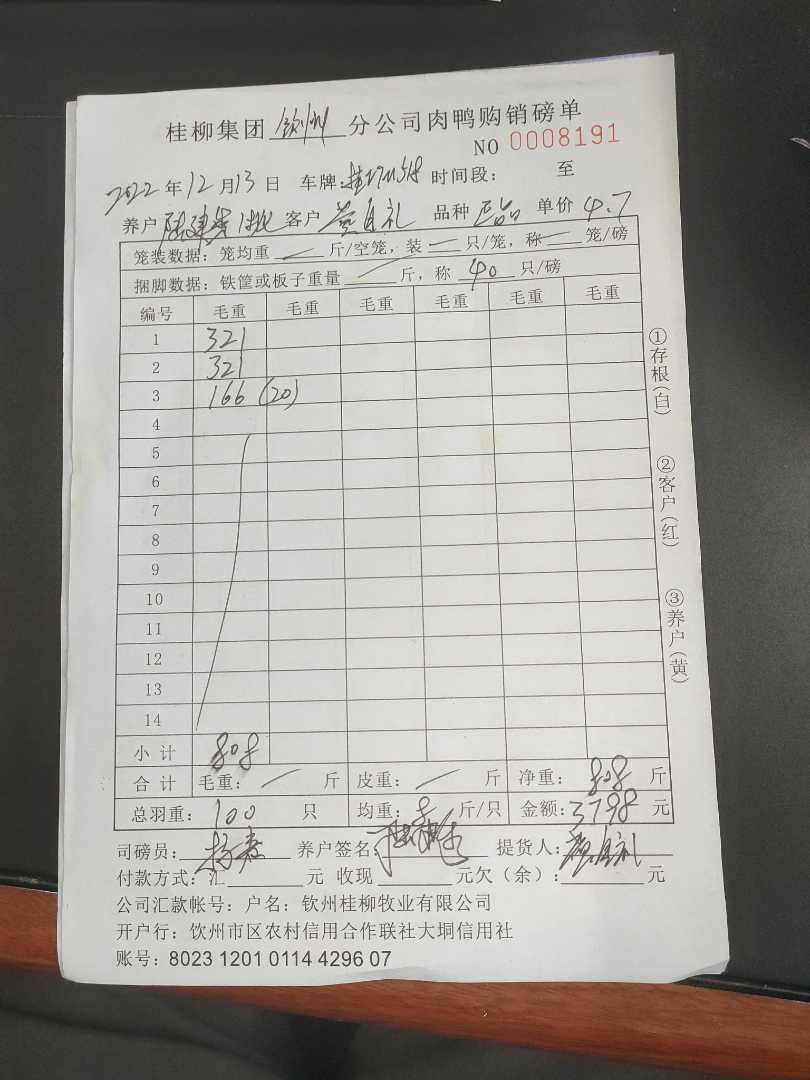 桂柳集团 钦州 分公司肉鸭购销磅单
NO 0008191
2022 年 12 月 13 日 车牌: 时间段: 至
养户 客户 自礼 品种 单价 4.7
笼装数据: 笼均重 斤/空笼, 装 只/笼, 称 笼/磅
捆脚数据: 铁筐或板子重量 斤, 称 40 只/磅
编号 毛重 毛重 毛重 毛重 毛重 毛重
1 321
2 321
3 166 (20)
4
5
6
7
8
9
10
11
12
13
14
小计 808
合计 毛重: 斤 皮重: 斤 净重: 808 斤
总羽重: 100 只 均重: 8 斤/只 金额: 3798 元
司磅员: 养户签名: 提货人: 自礼
付款方式: 汇 元 收现 元欠(余): 元
公司汇款帐号: 户名: 钦州桂柳牧业有限公司
开户行: 饮州市区农村信用合作联社大垌信用社
账号: 8023 1201 0114 4296 07
①存根(白)
②客户(红)
③养户(黄)